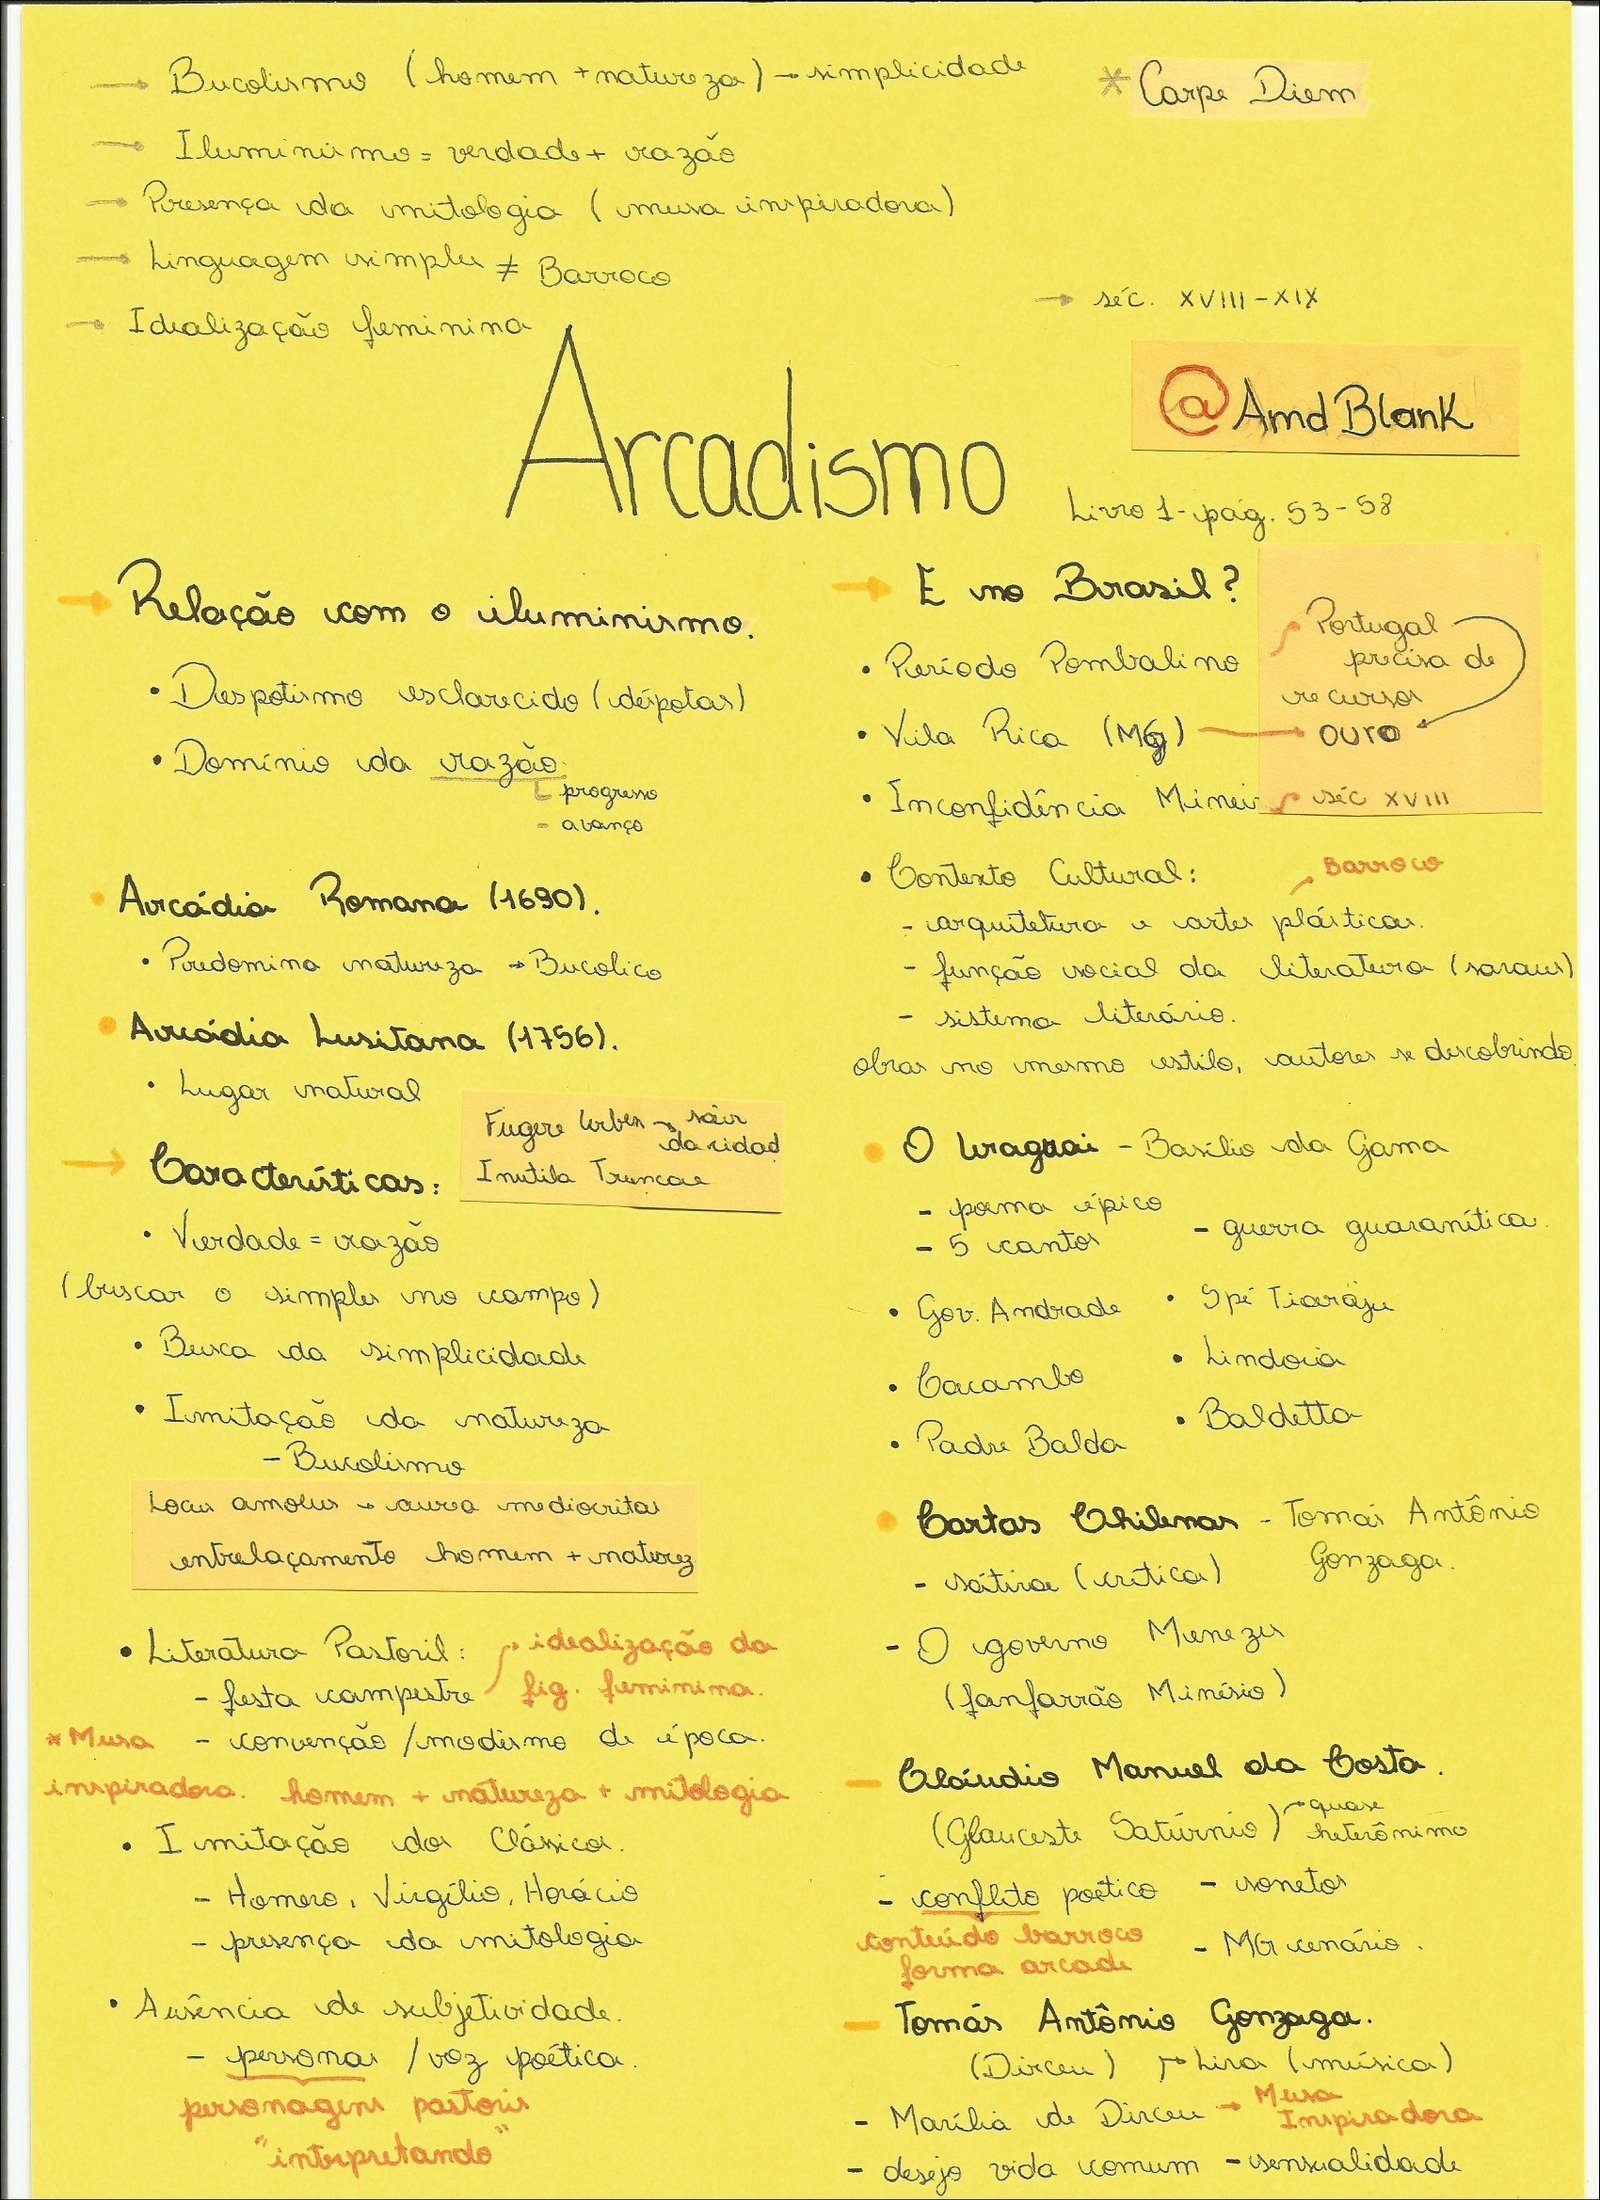 → Bucolismo (homem + natureza) → simplicidade
* Carpe Diem
→ Iluminismo = verdade + razão
→ Presença da mitologia (musa inspiradora)
→ Linguagem simples ≠ Barroco
→ Idealização feminina
→ séc. XVIII - XIX
@AmdBlank
Arcadismo
Livro 1 - pág. 53 - 58
→ Relação com o iluminismo.
• Despotismo esclarecido (déspotas)
• Domínio da razão.
progresso
- avanço
• Arcádia Romana (1690).
• Predomina natureza → Bucólico
• Arcádia Lusitana (1756).
• Lugar natural
→ Características:
Fugere Urbem → sair
da cidad
Inutila Truncae
• Verdade = razão
(buscar o simples no campo)
• Busca da simplicidade
• Imitação da natureza
- Bucolismo
Locus amolus → aurea mediocritas
entrelaçamento homem + naturez
• Literatura Pastoril:
- festa campestre → idealização da
fig. feminina.
* Musa
inspiradora.
- convenção / modismo de época.
homem + natureza + mitologia
• Imitação dos Clássicos.
- Homero, Virgílio, Horácio
- presença da mitologia
• Ausência de subjetividade.
- personas / voz poética.
personagens pastoris
"interpretando"
→ E no Brasil?
• Período Pombalino
→ Portugal
precisa de
recursos
• Vila Rica (MG) → ouro
• Inconfidência Mineir → séc XVIII
• Contexto Cultural:
- arquitetura e artes plásticas. → Barroco
- função social da literatura (saraus)
- sistema literário.
obras no mesmo estilo, autores se descobrindo
• O Uraguai - Basílio da Gama
- poema épico
- 5 cantos
- guerra guaranítica.
• Gov. Andrade
• Spé Tiaraju
• Cacambo
• Lindoia
• Padre Balda
• Baldetta
• Cartas Chilenas - Tomás Antônio
Gonzaga.
- sátira (crítica)
- O governo Menezes
(fanfarrão Minésio)
- Cláudio Manuel da Costa.
(Glauceste Satúrnio) → quase
heterônimo
- conflito poético - sonetos
conteúdo barroco
forma arcade
- MG cenário.
- Tomás Antônio Gonzaga.
(Dirceu) → Lira (música)
- Marília de Dirceu → Musa
Inspiradora
- desejo vida comum - sensualidade